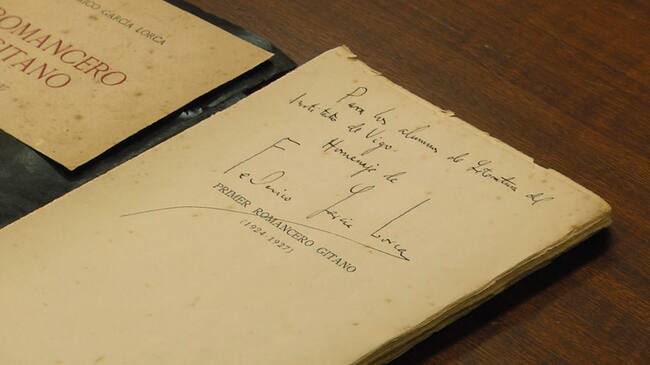 FEDERICO GARCÍA LORCA
ROMANCERO
GITANO
Para los alumnos de Literatura del
Instituto de Vigo.
Homenaje de
Federico García Lorca
PRIMER ROMANCERO GITANO
(1924-1927)